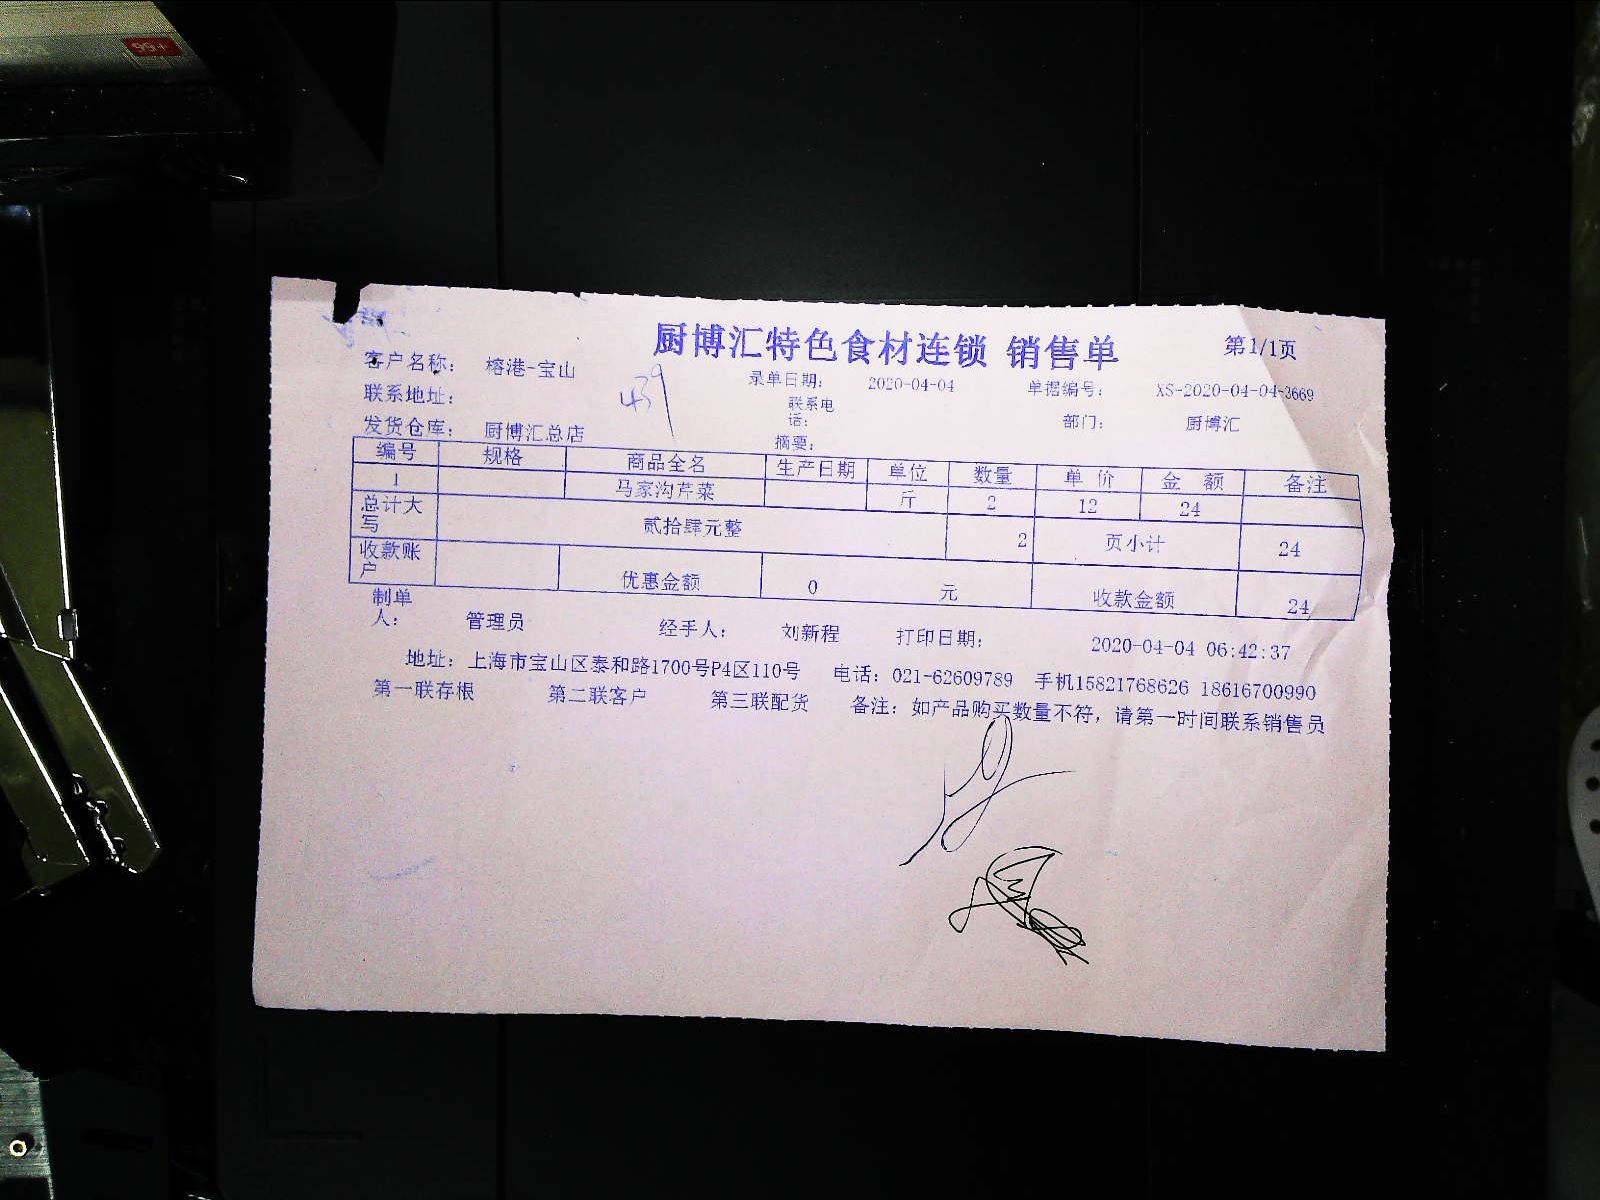 99+
A5
厨博汇特色食材连锁 销售单 第1/1页
客户名称: 榕港-宝山 439 录单日期: 2020-04-04 单据编号: XS-2020-04-04-3669
联系地址: 联系电话: 部门: 厨博汇
发货仓库: 厨博汇总店 摘要:
编号 规格 商品全名 生产日期 单位 数量 单价 金额 备注
1 马家沟芹菜 斤 2 12 24
总计大写 贰拾肆元整 2 页小计 24
收款账户 优惠金额 0 元 收款金额 24
制单人: 管理员 经手人: 刘新程 打印日期: 2020-04-04 06:42:37
地址: 上海市宝山区泰和路1700号P4区110号 电话: 021-62609789 手机15821768626 18616700990
第一联存根 第二联客户 第三联配货 备注: 如产品购买数量不符, 请第一时间联系销售员